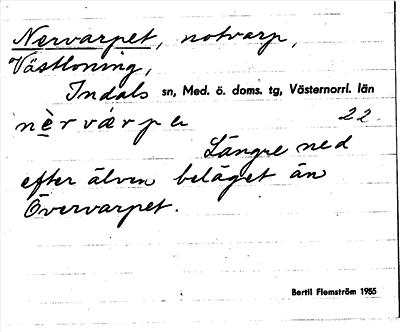 Nervarpet, notvarp,
Västloning,
Indals sn, Med. ö. doms. tg, Västernorrl. län
nè̱rvárpe 22.
Längre ned
efter älven beläget än
Övervarpet.
Bertil Flemström 1955